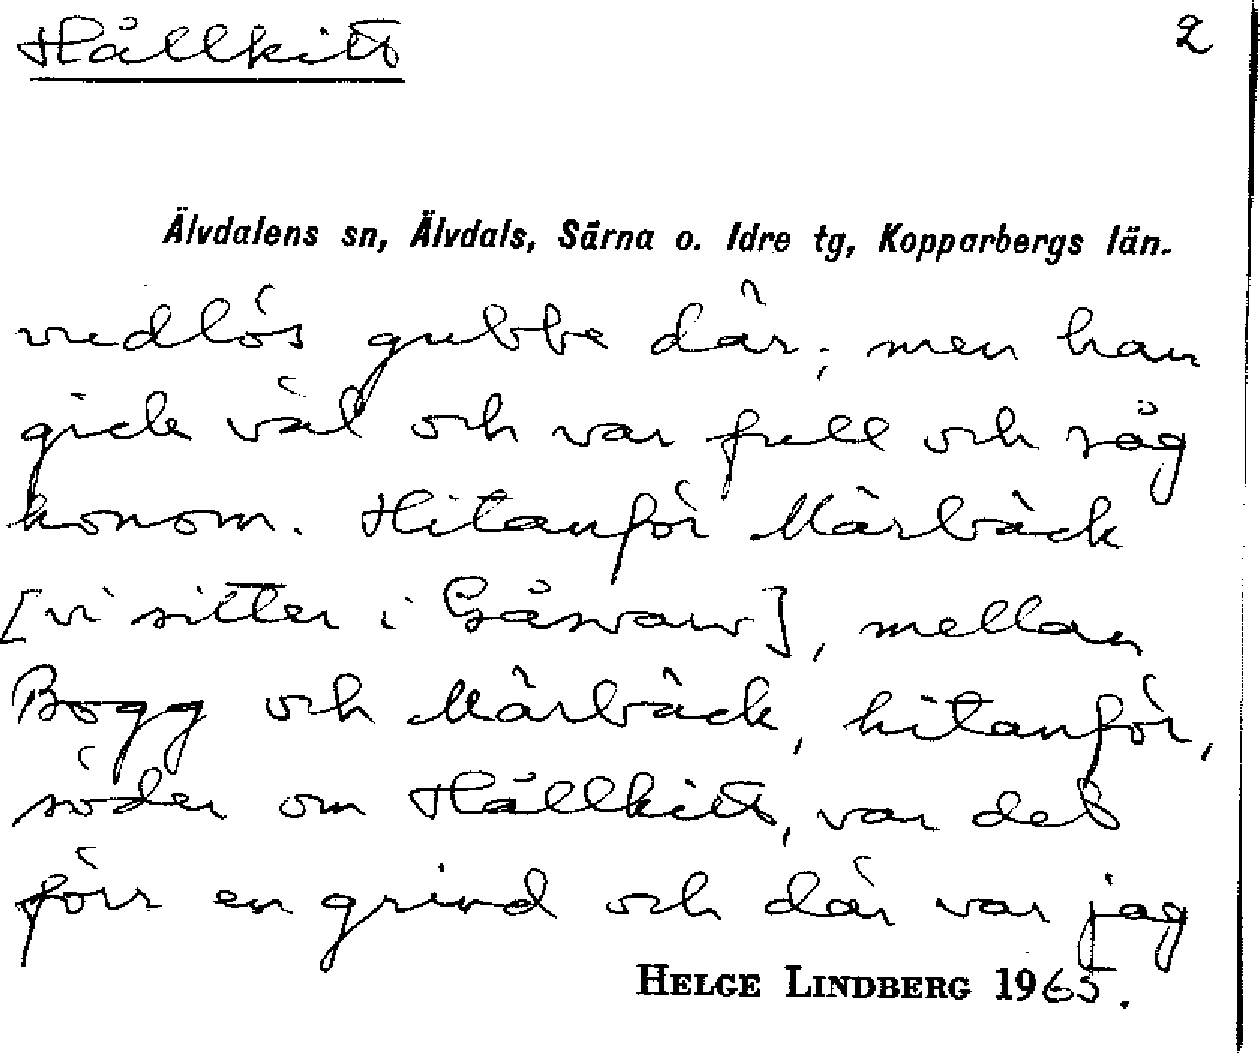 Hållkitt 2
Älvdalens sn, Älvdals, Särna o. Idre tg, Kopparbergs län.
vedlös gubbe där; men han
gick väl och var full och såg
honom. Hitanför Märbäck
[vi sitter i Gåsvarv], mellan
Bogg och Märbäck, hitanför,
söder om Hållkitt, var det
förr en grind och där var jag
HELGE LINDBERG 1965.